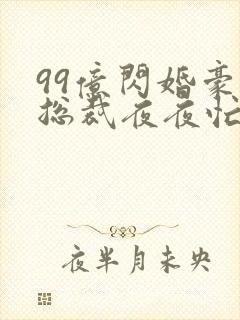 99億閃婚豪
总裁夜夜忙
夜半月未央